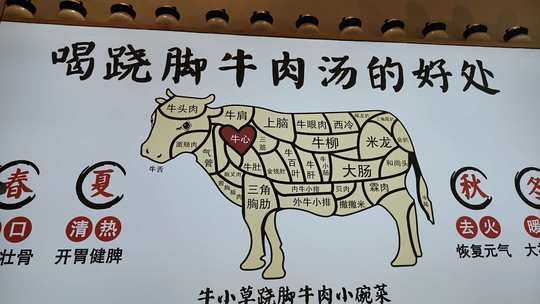 喝跷脚牛肉汤的好处
牛头肉
牛肩
上脑
牛眼肉
西冷
面腱肉
气管
牛心
牛柳
米龙
牛舌
牛肚
金钱肚
牛百叶
牛肝
牛小肠
大肠
和尚头
三角胸肋
内牛小排
外牛小排
贝肉
撒撒米
霖肉
春
口
壮骨
夏
清热
开胃健脾
秋
去火
恢复元气
冬
暖
大
牛小草跷脚牛肉小碗菜